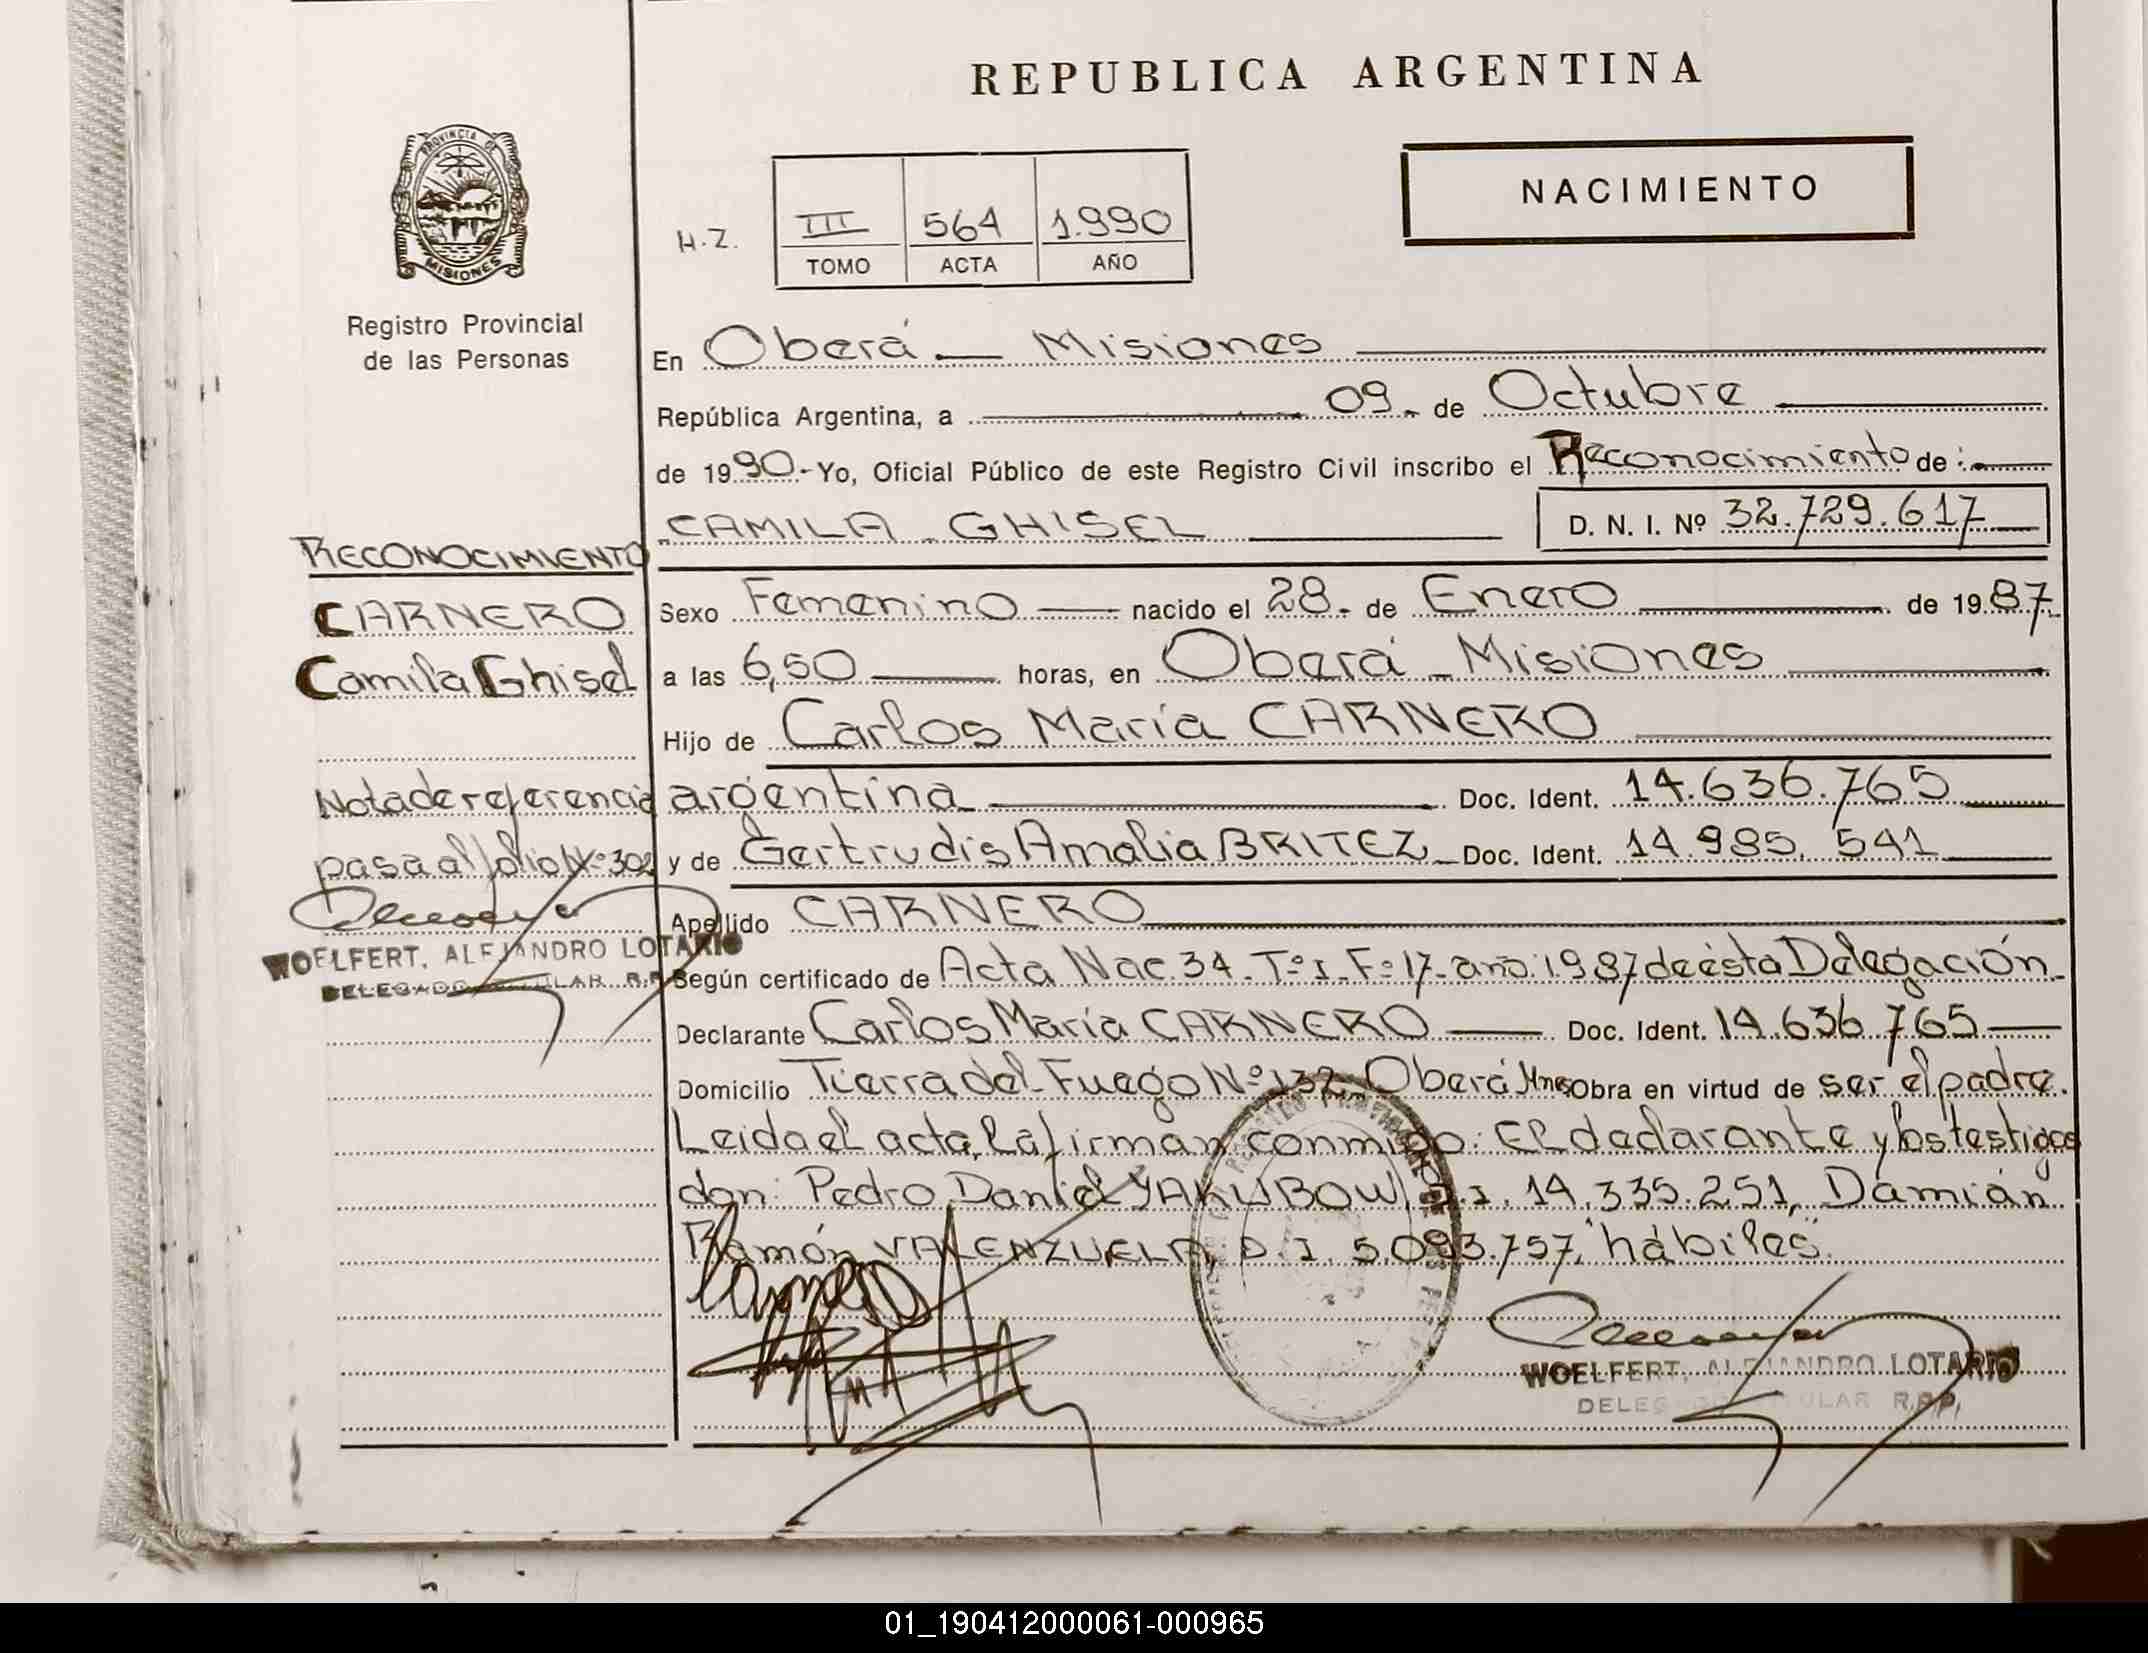 REPUBLICA ARGENTINA
NACIMIENTO
PROVINCIA DE
MISIONES
Registro Provincial
de las Personas
H.Z.
III 564 1.990
TOMO ACTA AÑO
En Oberá - Misiones
República Argentina, a 09. de Octubre
de 1990.- Yo, Oficial Público de este Registro Civil inscribo el Reconocimiento de:
CAMILA GHISEL D. N. I. Nº 32.729.617
Sexo Femenino nacido el 28. de Enero de 1987.
a las 6,50 horas, en Oberá - Misiones
Hijo de Carlos María CARNERO
argentina Doc. Ident. 14.636.765
y de Gertrudis Amalia BRITEZ Doc. Ident. 14.985.541
Apellido CARNERO
Según certificado de Acta Nac. 34. Tº I. Fº 17. año: 1.987 de ésta Delegación.
Declarante Carlos María CARNERO Doc. Ident. 14.636.765
Domicilio Tierra del Fuego Nº 132. Oberá Mnes Obra en virtud de ser el padre.
Leida el acta, la firman conmigo: El declarante y los testigos
don: Pedro Daniel YAKUBOW, D.I. 14.335.251, Damián
Ramón VALENZUELA, D.I. 5.093.757, hábiles.
WOELFERT, ALEJANDRO LOTARIO
DELEGADO TITULAR R.P.P.
RECONOCIMIENTO
CARNERO
Camila Ghisel
Nota de referencia
pasa al folio Nº 302
WOELFERT, ALEJANDRO LOTARIO
DELEGADO TITULAR R.P.
01_190412000061-000965